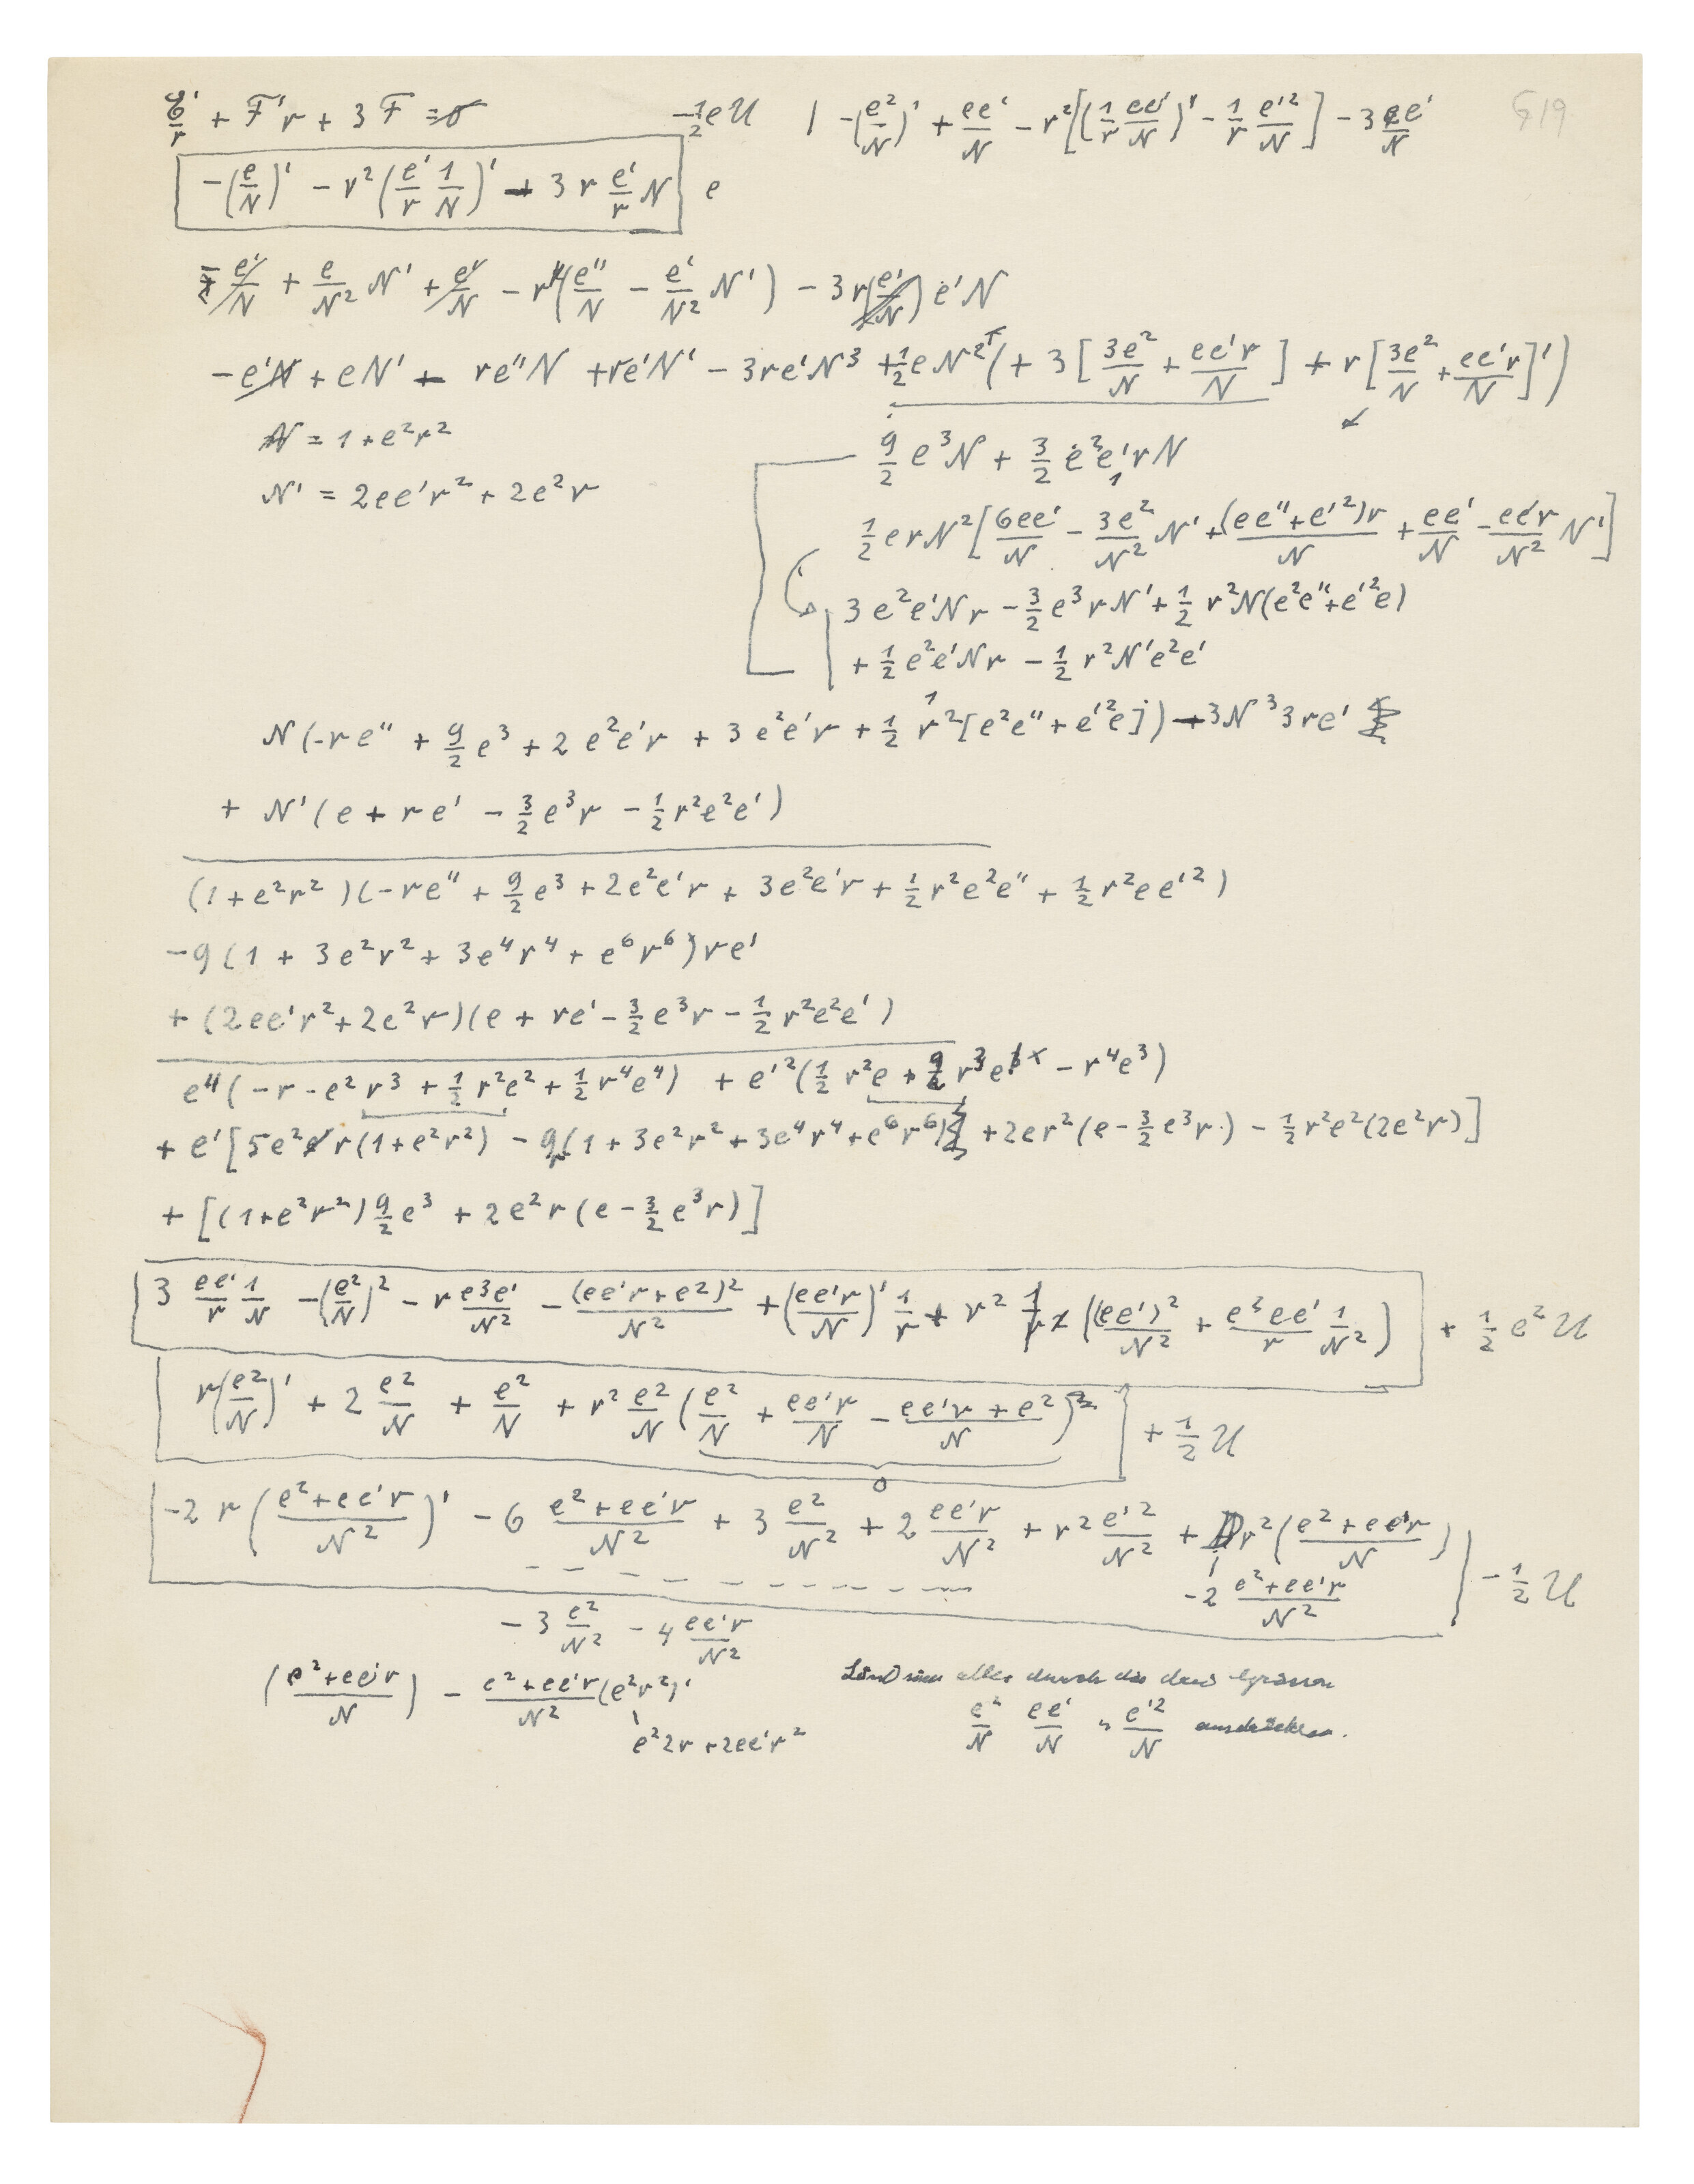 𝔊'/r + F'r + 3F = 0   -1/2 e U   | -(e²/N)' + ee'/N - r²[(1/r ee'/N)' - 1/r e'²/N] - 3 ee'/N   619
-(e/N)' - r²(e'/r 1/N)' - 3r e'/r N | e
- e'/N + e/N² N' + e'/N - r(e''/N - e'/N² N') - 3r e'N
- e'N + eN' - re''N + re'N' - 3re'N³ + 1/2 eN²(+ 3[3e²/N + ee'r/N] + r[3e²/N + ee'r/N]')
N = 1 + e²r²
9/2 e³N + 3/2 e²e'rN
N' = 2ee'r² + 2e²r
1/2 erN²[6ee'/N - 3e²/N² N' + (ee''+e'²)r/N + ee'/N - ee'r/N² N']
3e²e'Nr - 3/2 e³rN' + 1/2 r²N(e²e''+e'²e)
+ 1/2 e²e'Nr - 1/2 r²N'e²e'
N(-re'' + 9/2 e³ + 2e²e'r + 3e²e'r + 1/2 r²[e²e'' + e'²e]) - 3N³3re'
+ N'(e + re' - 3/2 e³r - 1/2 r²e²e')
(1+e²r²)(-re'' + 9/2 e³ + 2e²e'r + 3e²e'r + 1/2 r²e²e'' + 1/2 r²ee'²)
-9(1 + 3e²r² + 3e⁴r⁴ + e⁶r⁶)re'
+ (2ee'r²+2e²r)(e + re' - 3/2 e³r - 1/2 r²e²e')
e''(-r - e²r³ + 1/2 r²e² + 1/2 r⁴e⁴) + e'²(1/2 r²e + r³e - r⁴e³)
+ e'[5e²r(1+e²r²) - 9r(1+3e²r²+3e⁴r⁴+e⁶r⁶) + 2er²(e - 3/2 e³r) - 1/2 r²e²(2e²r)]
+ [(1+e²r²)9/2 e³ + 2e²r(e - 3/2 e³r)]
3 ee'/r 1/N - (e²/N)² - r e³e'/N² - (ee'r+e²)²/N² + (ee'r/N)' 1/r + r² ((ee')²/N² + e²ee'/r 1/N²) + 1/2 e² U
r(e²/N)' + 2 e²/N + e²/N + r² e²/N (e²/N + ee'r/N - (ee'r+e²)/N) + 1/2 U
0
-2r((e²+ee'r)/N²)' - 6 (e²+ee'r)/N² + 3 e²/N² + 2 ee'r/N² + r² e'²/N² + r²((e²+ee'r)/N) - 1/2 U
-2 (e²+ee'r)/N²
- 3 e²/N² - 4 ee'r/N²
((e²+ee'r)/N) - (e²+ee'r)/N² (e²r²)'
e²2r + 2ee'r²
alles durch die drei Grössen
e²/N  ee'/N  u e'²/N ausdrücken.